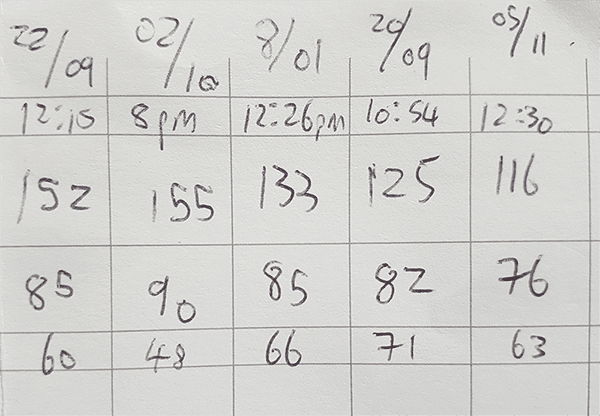 22/09 02/10 8/01 20/09 05/11
12:15 8pm 12:26pm 10:54 12:30
152 155 133 125 116
85 90 85 82 76
60 48 66 71 63